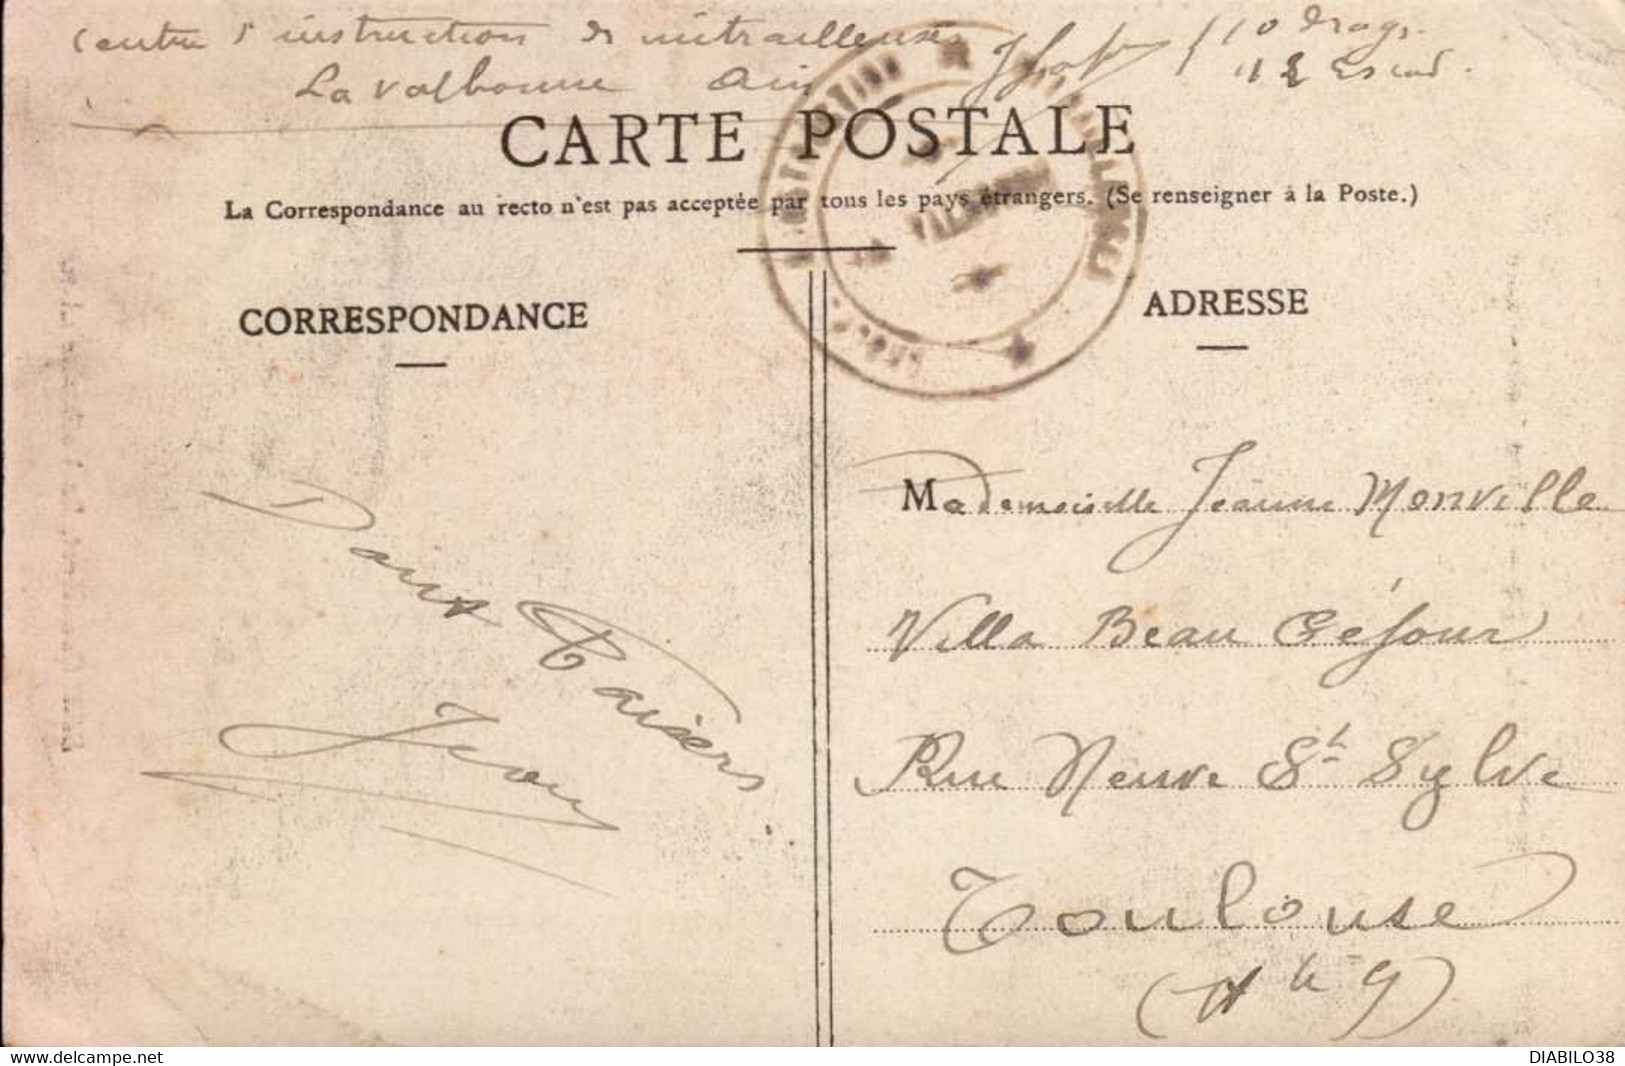 Centre d'instruction de mitrailleuses
10 Drags.
La Valbonne Ain
12 Escad.
CARTE POSTALE
La Correspondance au recto n'est pas acceptée par tous les pays étrangers. (Se renseigner à la Poste.)
CORRESPONDANCE
ADRESSE
Mademoiselle Jeanne Monville
Villa Beau Céjour
Rue Neuve St Sylve
Toulouse
(Hte G)
Doux Baisers
Jean
DIABILO38
www.delcampe.net